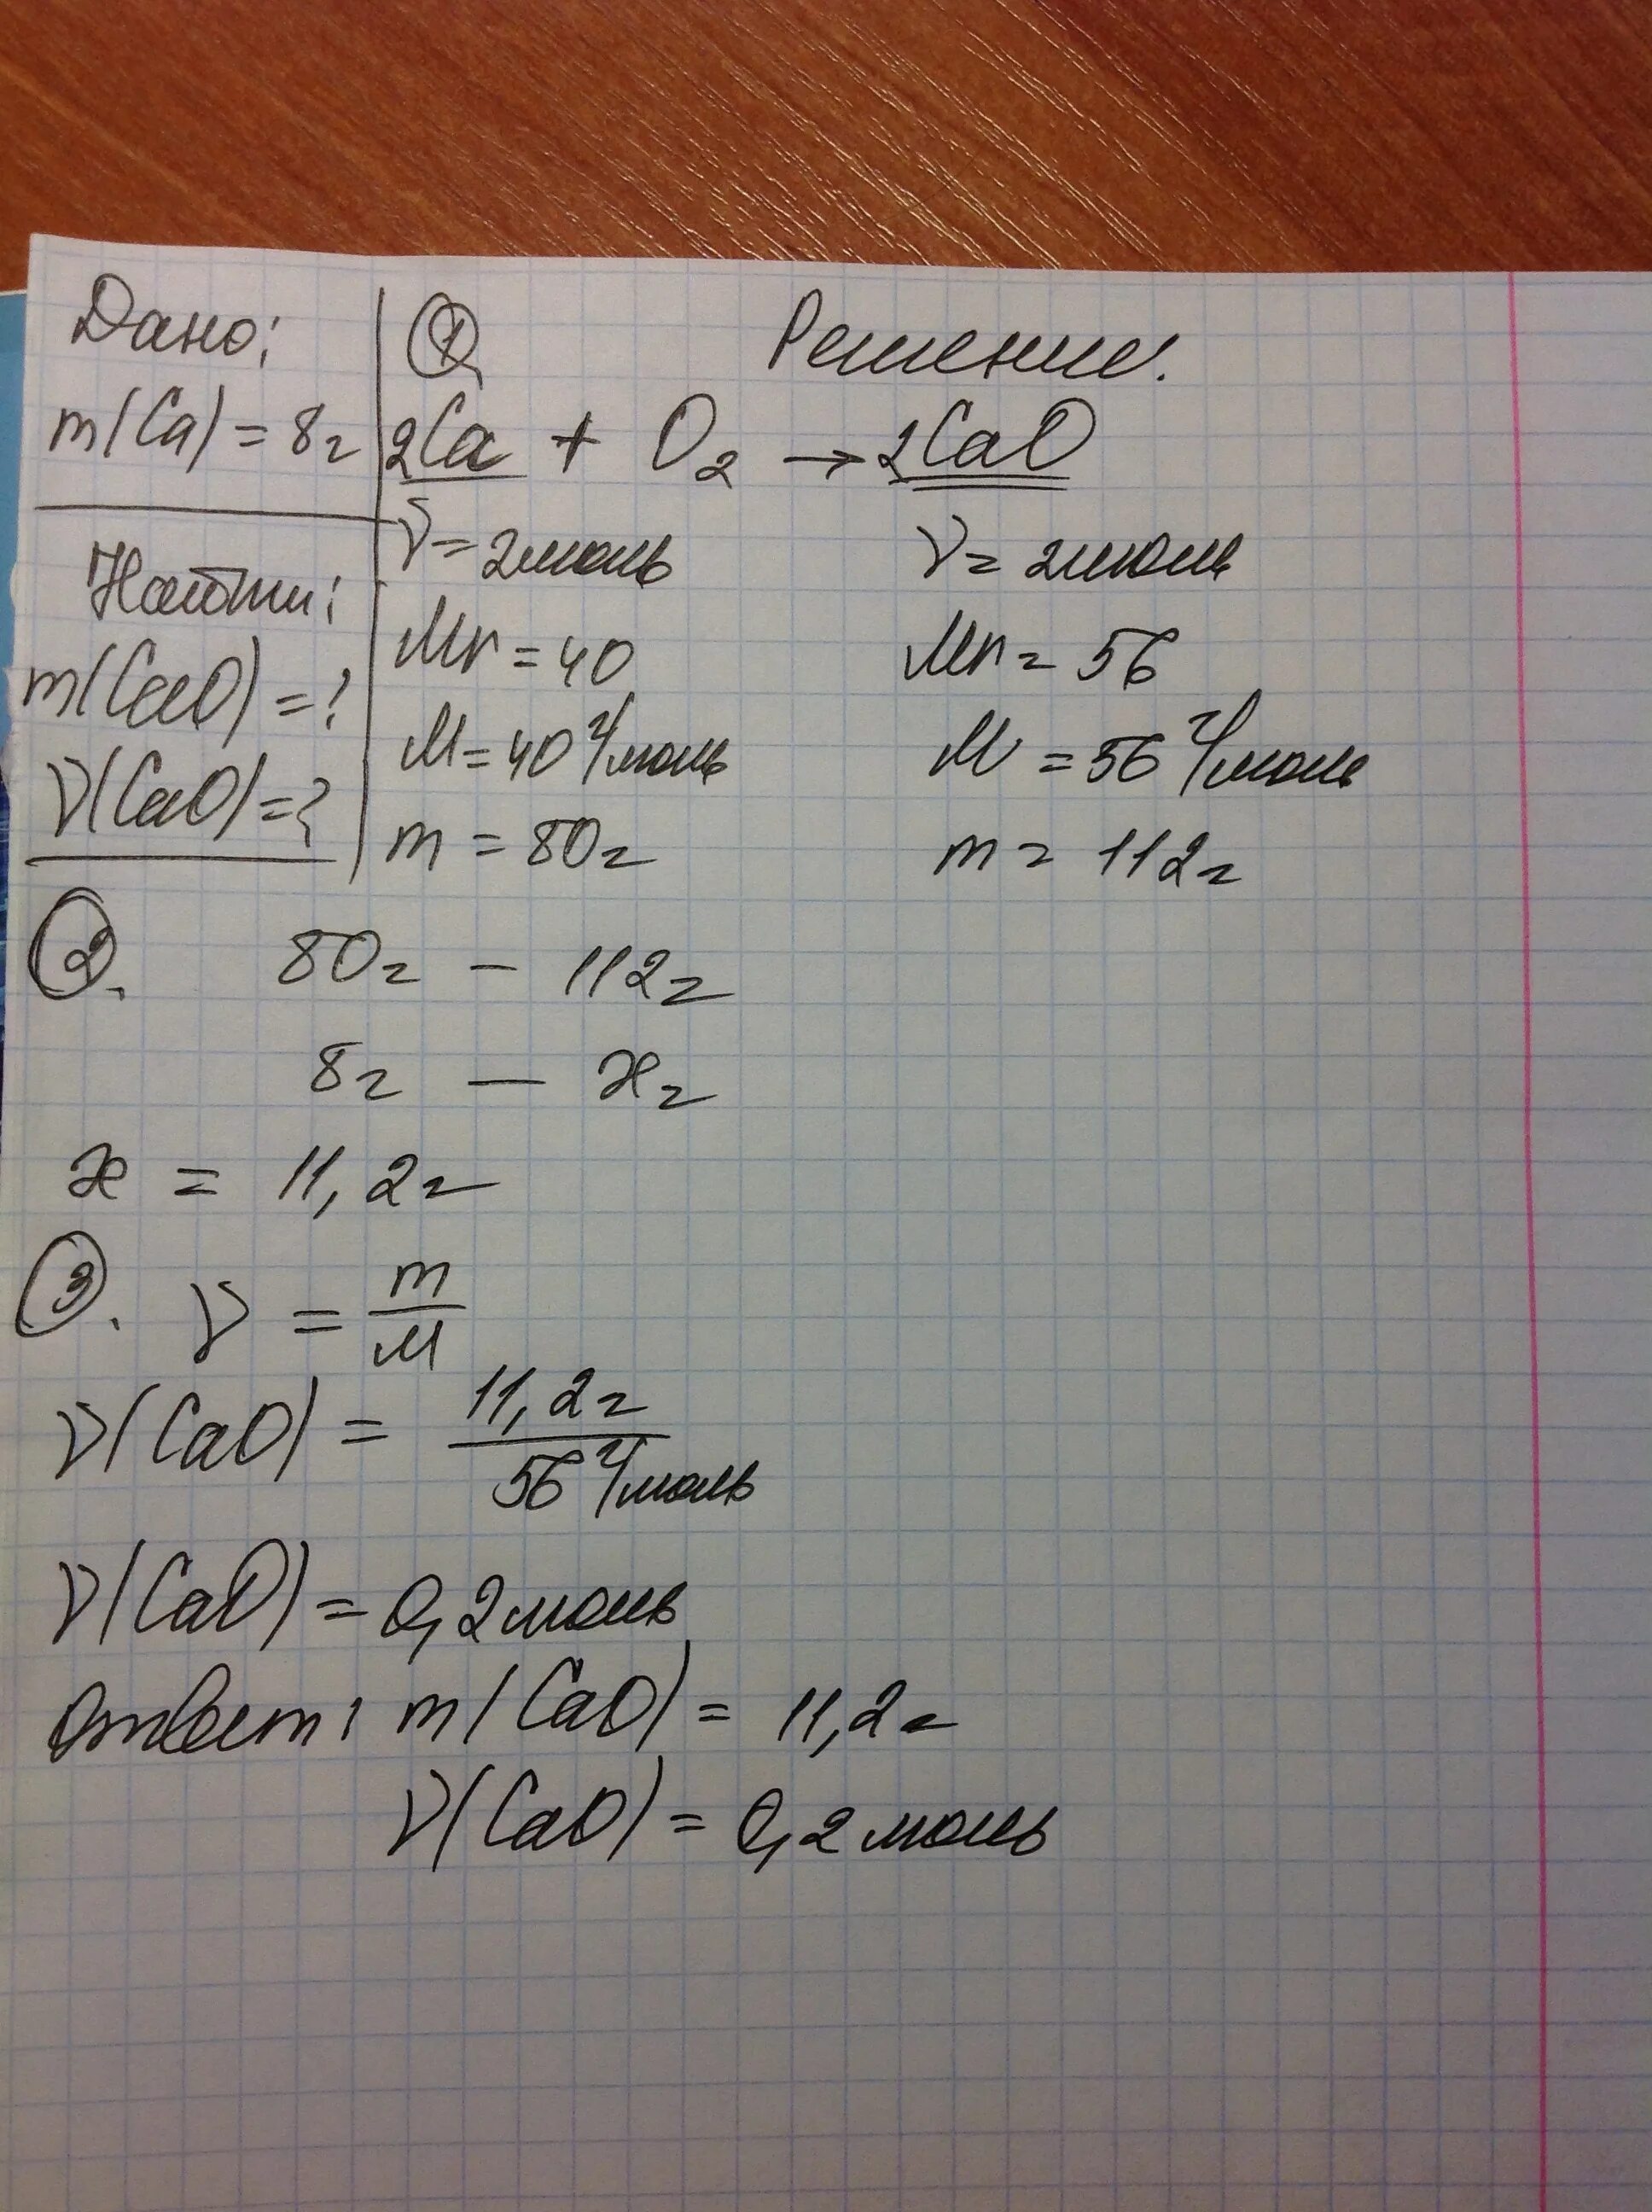 Дано:
m(Ca) = 8г
Найти:
m(CaO) = ?
ν(CaO) = ?
1 Решение.
2Ca + O₂ → 2CaO
ν = 2моль ν = 2моль
Mr = 40 Mr = 56
M = 40 г/моль M = 56 г/моль
m = 80г m = 112г
2. 80г – 112г
8г – xг
x = 11,2г
3. ν = m/M
ν(CaO) = 11,2г / 56 г/моль
ν(CaO) = 0,2моль
Ответ: m(CaO) = 11,2г
ν(CaO) = 0,2 моль